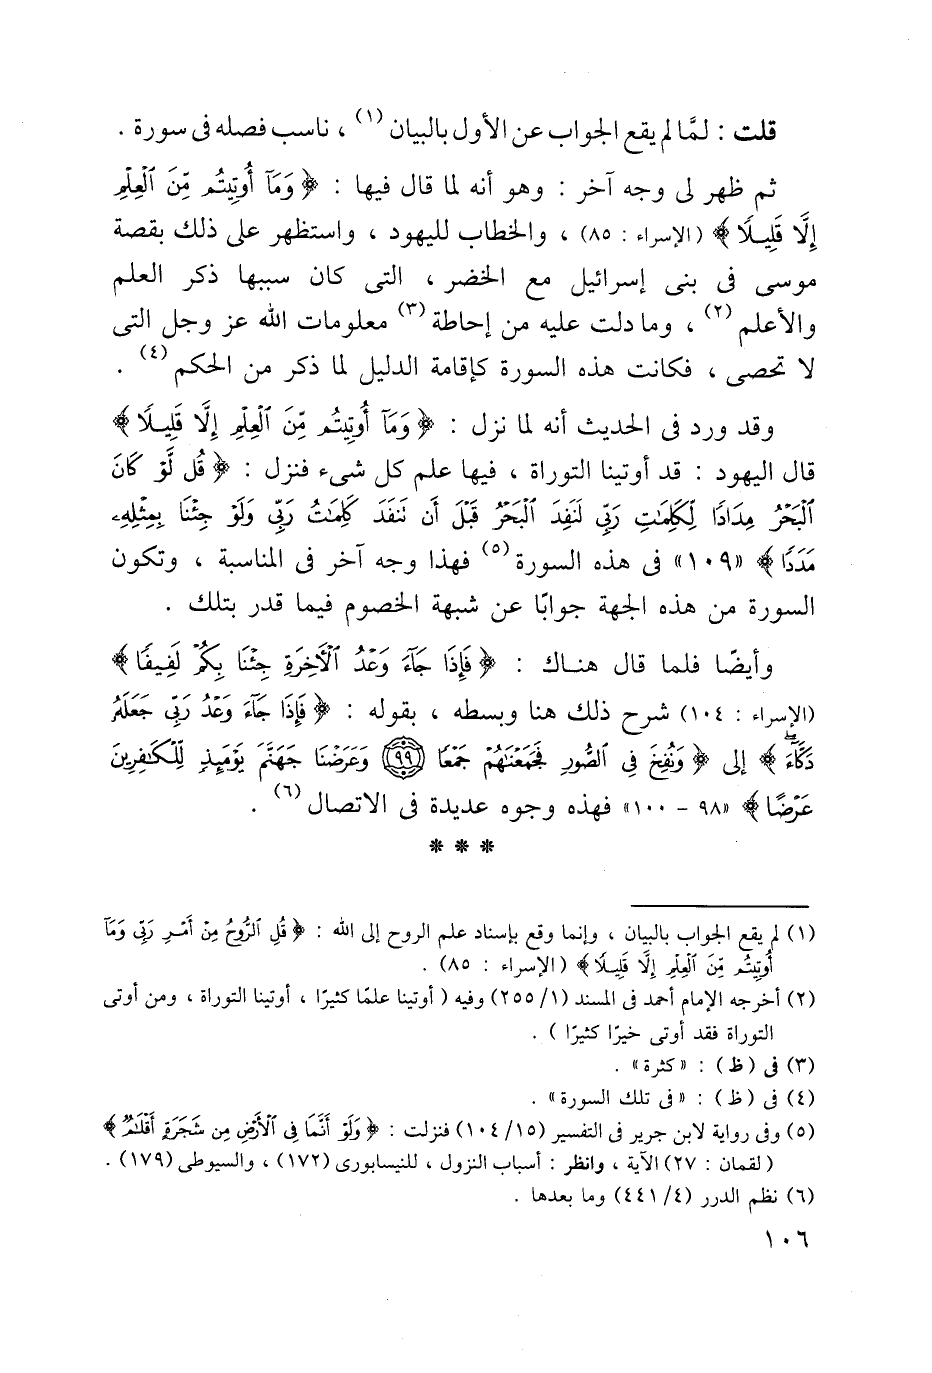 قلت : لمَّا لم يقع الجواب عن الأول بالبيان (١) ، ناسب فصله فى سورة .
ثم ظهر لى وجه آخر : وهو أنه لما قال فيها : ﴿ وَمَآ أُوتِيتُم مِّنَ ٱلْعِلْمِ
إِلَّا قَلِيلًا ﴾ (الإسراء : ٨٥) ، والخطاب لليهود ، واستظهر على ذلك بقصة
موسى فى بنى إسرائيل مع الخضر ، التى كان سببها ذكر العلم
والأعلم (٢) ، وما دلت عليه من إحاطة (٣) معلومات الله عز وجل التى
لا تحصى ، فكانت هذه السورة كإقامة الدليل لما ذكر من الحكم (٤) .
وقد ورد فى الحديث أنه لما نزل : ﴿ وَمَآ أُوتِيتُم مِّنَ ٱلْعِلْمِ إِلَّا قَلِيلًا ﴾
قال اليهود : قد أوتينا التوراة ، فيها علم كل شىء فنزل : ﴿ قُل لَّوْ كَانَ
ٱلْبَحْرُ مِدَادًا لِّكَلِمَٰتِ رَبِّى لَنَفِدَ ٱلْبَحْرُ قَبْلَ أَن تَنفَدَ كَلِمَٰتُ رَبِّى وَلَوْ جِئْنَا بِمِثْلِهِۦ
مَدَدًا ﴾ «١٠٩» فى هذه السورة (٥) فهذا وجه آخر فى المناسبة ، وتكون
السورة من هذه الجهة جوابًا عن شبهة الخصوم فيما قدر بتلك .
وأيضًا فلما قال هناك : ﴿ فَإِذَا جَآءَ وَعْدُ ٱلْآخِرَةِ جِئْنَا بِكُمْ لَفِيفًا ﴾
(الإسراء : ١٠٤) شرح ذلك هنا وبسطه ، بقوله : ﴿ فَإِذَا جَآءَ وَعْدُ رَبِّى جَعَلَهُۥ
دَكَّآءَ ﴾ إلى ﴿ وَنُفِخَ فِى ٱلصُّورِ فَجَمَعْنَٰهُمْ جَمْعًا ٩٩ وَعَرَضْنَا جَهَنَّمَ يَوْمَئِذٍ لِّلْكَٰفِرِينَ
عَرْضًا ﴾ «٩٨ - ١٠٠» فهذه وجوه عديدة فى الاتصال (٦) .
* * *
(١) لم يقع الجواب بالبيان ، وإنما وقع بإسناد علم الروح إلى الله : ﴿ قُلِ ٱلرُّوحُ مِنْ أَمْرِ رَبِّى وَمَآ
أُوتِيتُم مِّنَ ٱلْعِلْمِ إِلَّا قَلِيلًا ﴾ (الإسراء : ٨٥) .
(٢) أخرجه الإمام أحمد فى المسند (١/ ٢٥٥) وفيه ( أوتينا علمًا كثيرًا ، أوتينا التوراة ، ومن أوتى
التوراة فقد أوتى خيرًا كثيرًا ) .
(٣) فى ( ظ ) : «كثرة» .
(٤) فى ( ظ ) : «فى تلك السورة» .
(٥) وفى رواية لابن جرير فى التفسير (١٥/ ١٠٤) فنزلت : ﴿ وَلَوْ أَنَّمَا فِى ٱلْأَرْضِ مِن شَجَرَةٍ أَقْلَٰمٌ ﴾
( لقمان : ٢٧) الآية ، وانظر : أسباب النزول ، للنيسابورى (١٧٢) ، والسيوطى (١٧٩) .
(٦) نظم الدرر (٤/ ٤٤١) وما بعدها .
١٠٦